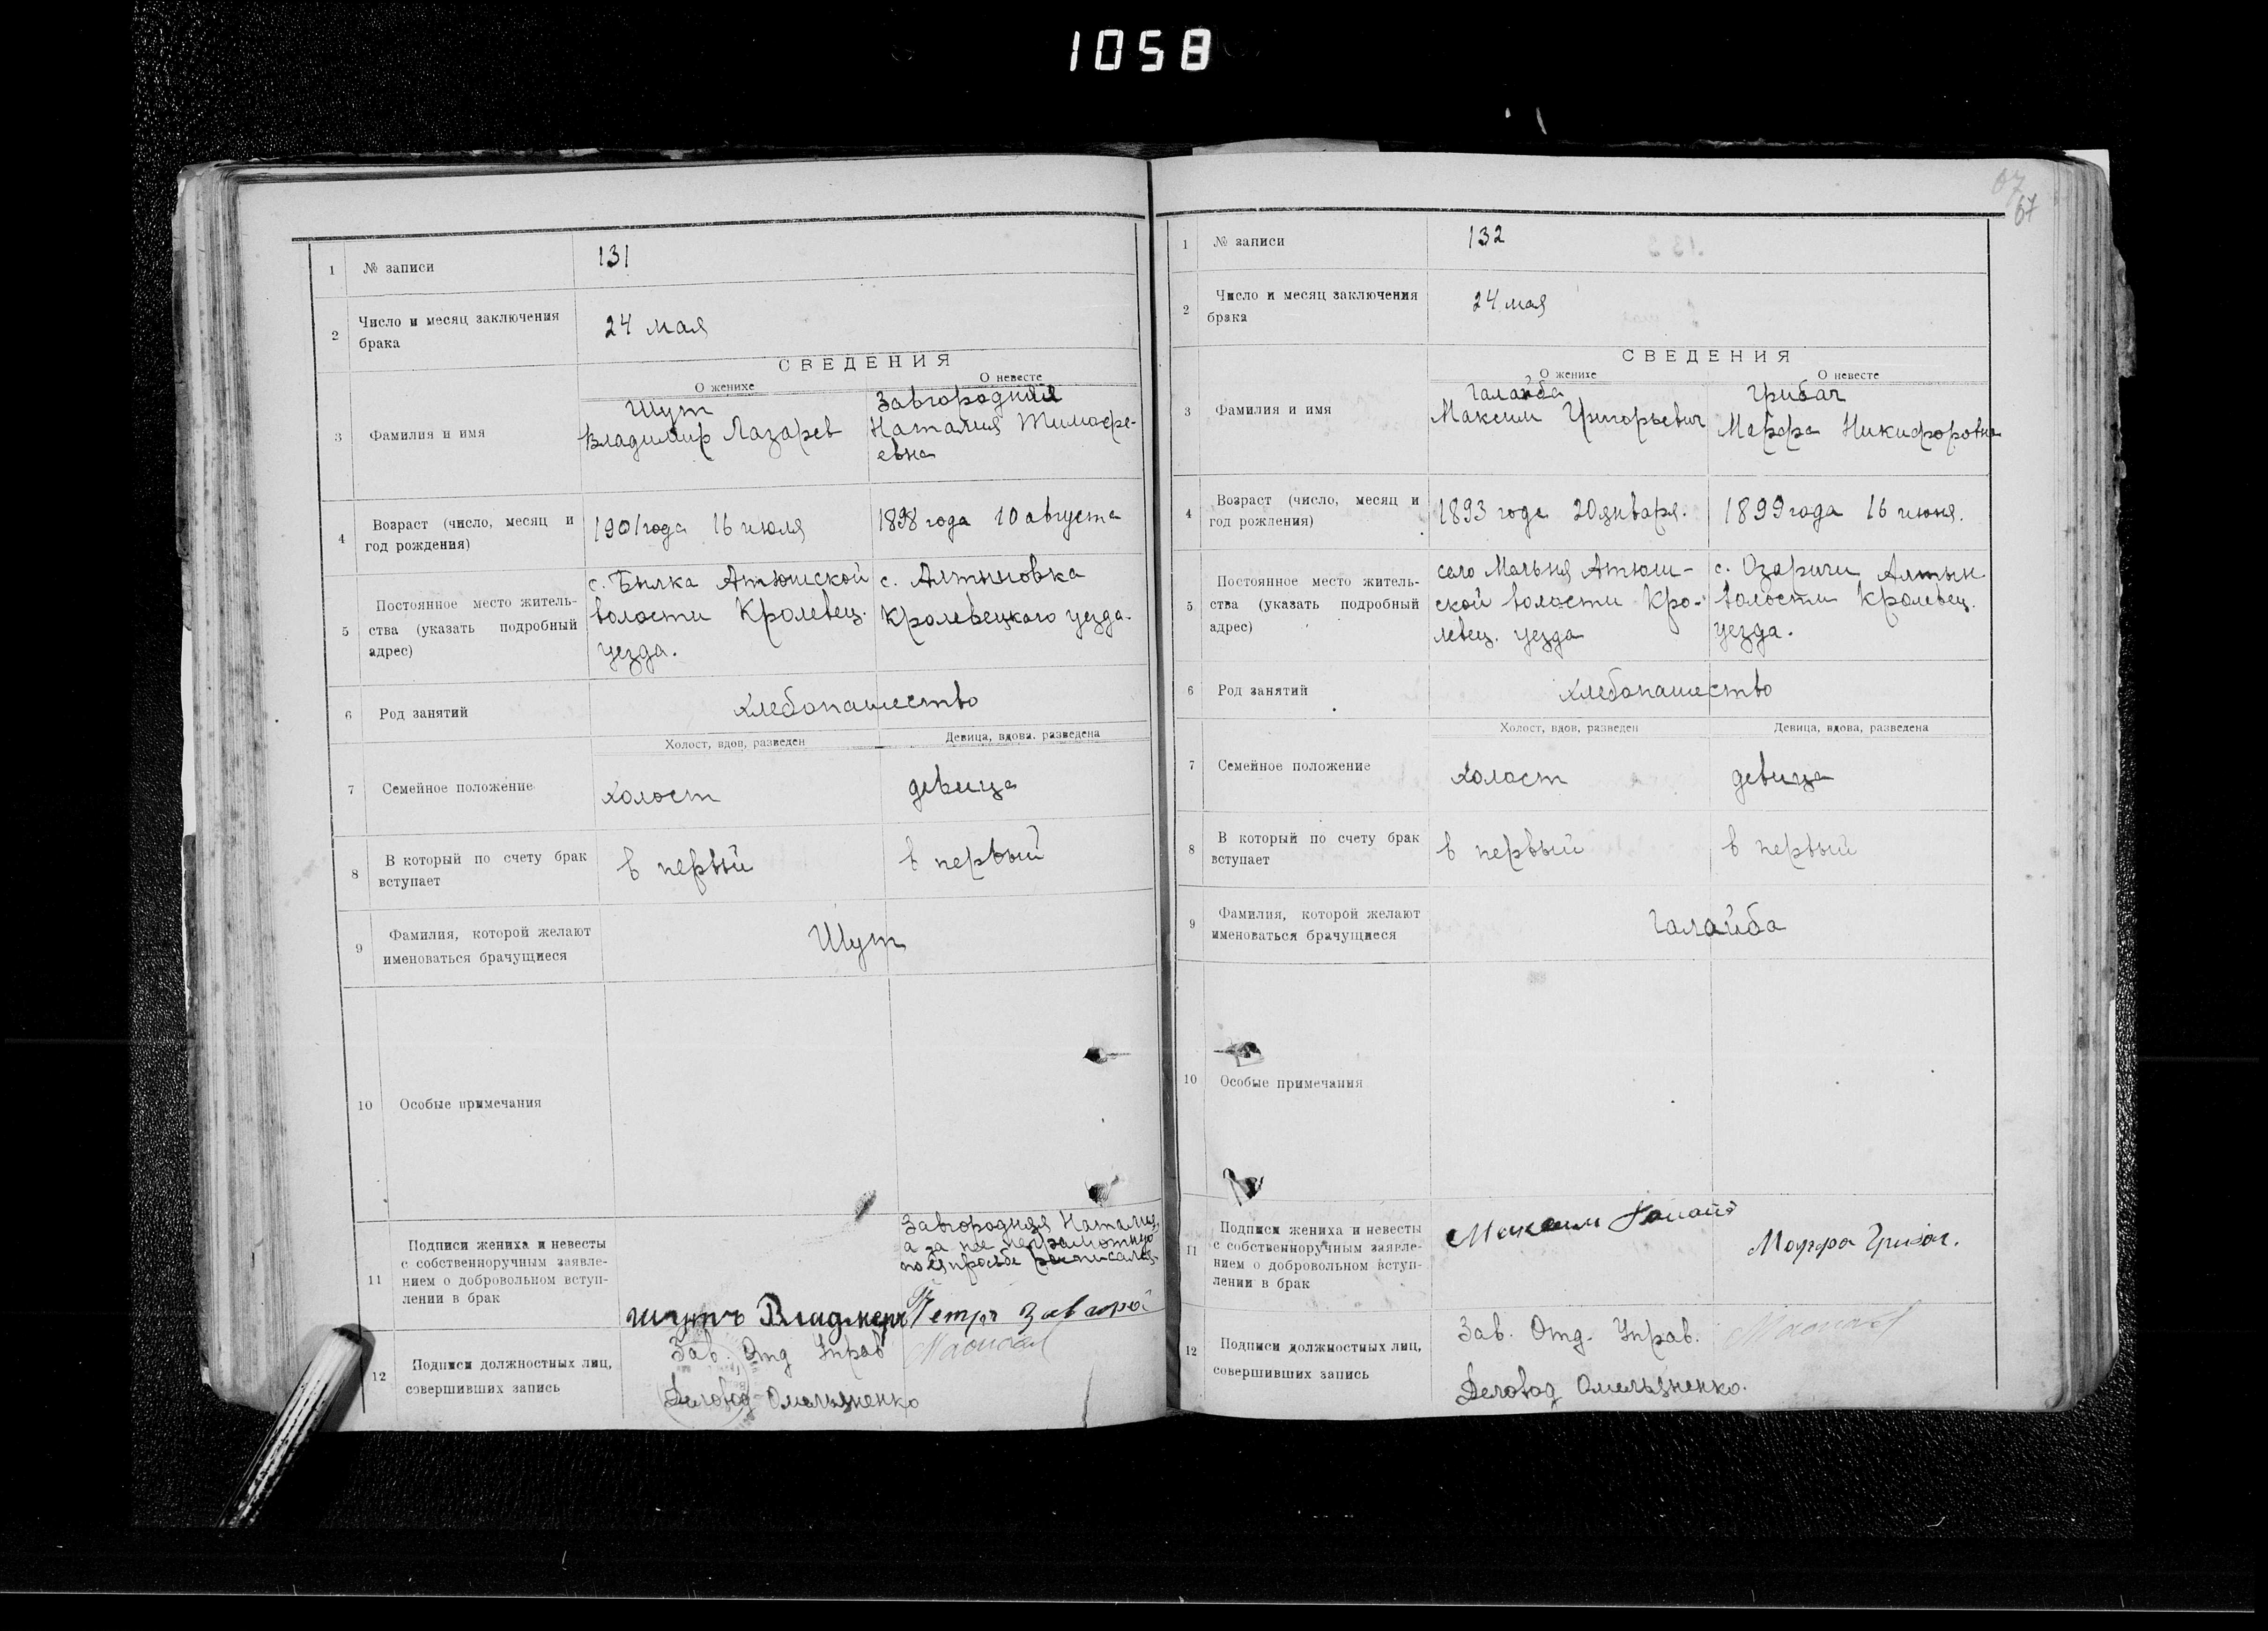 1058
1 № записи 131
2 Число и месяц заключения
брака
24 мая
СВЕДЕНИЯ
О женихе О невесте
3 Фамилия и имя
Шут
Владимир Лазарев
Завгородняя
Наталия Тимофе-
евна
4 Возраст (число, месяц и
год рождения)
1901 года 16 июля
1898 года 10 августа
5 Постоянное место житель-
ства (указать подробный
адрес)
с. Былка Атюшской
волости Кролевец.
уезда.
с. Алтыновка
Кролевецкого уезда.
6 Род занятий
хлебопашество
Холост, вдов, разведен Девица, вдова, разведена
7 Семейное положение
холост девица
8 В который по счету брак
вступает
в первый в первый
9 Фамилия, которой желают
именоваться брачущиеся
Шут
10 Особые примечания
11 Подписи жениха и невесты
с собственноручным заявле-
нием о добровольном вступ-
лении в брак
Завгородняя Наталия,
а за нее неграмотную
по ея просьбе расписался
Шутъ Владмеръ Петръ
12 Подписи должностных лиц,
совершивших запись
Зав. Отд Управ
Деловод Омельяненко
67
67
1 № записи 132
2 Число и месяц заключения
брака
24 мая
СВЕДЕНИЯ
О женихе О невесте
3 Фамилия и имя
Галайба
Максим Григорьевич
Грибач
Марфа Никифоровна
4 Возраст (число, месяц и
год рождения)
1893 года 20 января.
1899 года 16 июня.
5 Постоянное место житель-
ства (указать подробный
адрес)
село Мальня Атюш-
ской волости Кро-
левец. уезда
с. Озаричи Алтын.
волости Кролевец.
уезда.
6 Род занятий
хлебопашество
Холост, вдов, разведен Девица, вдова, разведена
7 Семейное положение
холост девица
8 В который по счету брак
вступает
в первый в первый
9 Фамилия, которой желают
именоваться брачущиеся
Галайба
10 Особые примечания
11 Подписи жениха и невесты
с собственноручным заявле-
нием о добровольном вступ-
лении в брак
Максим
Марфа Грибач.
12 Подписи должностных лиц,
совершивших запись
Зав. Отд. Управ.
Деловод Омельяненко.